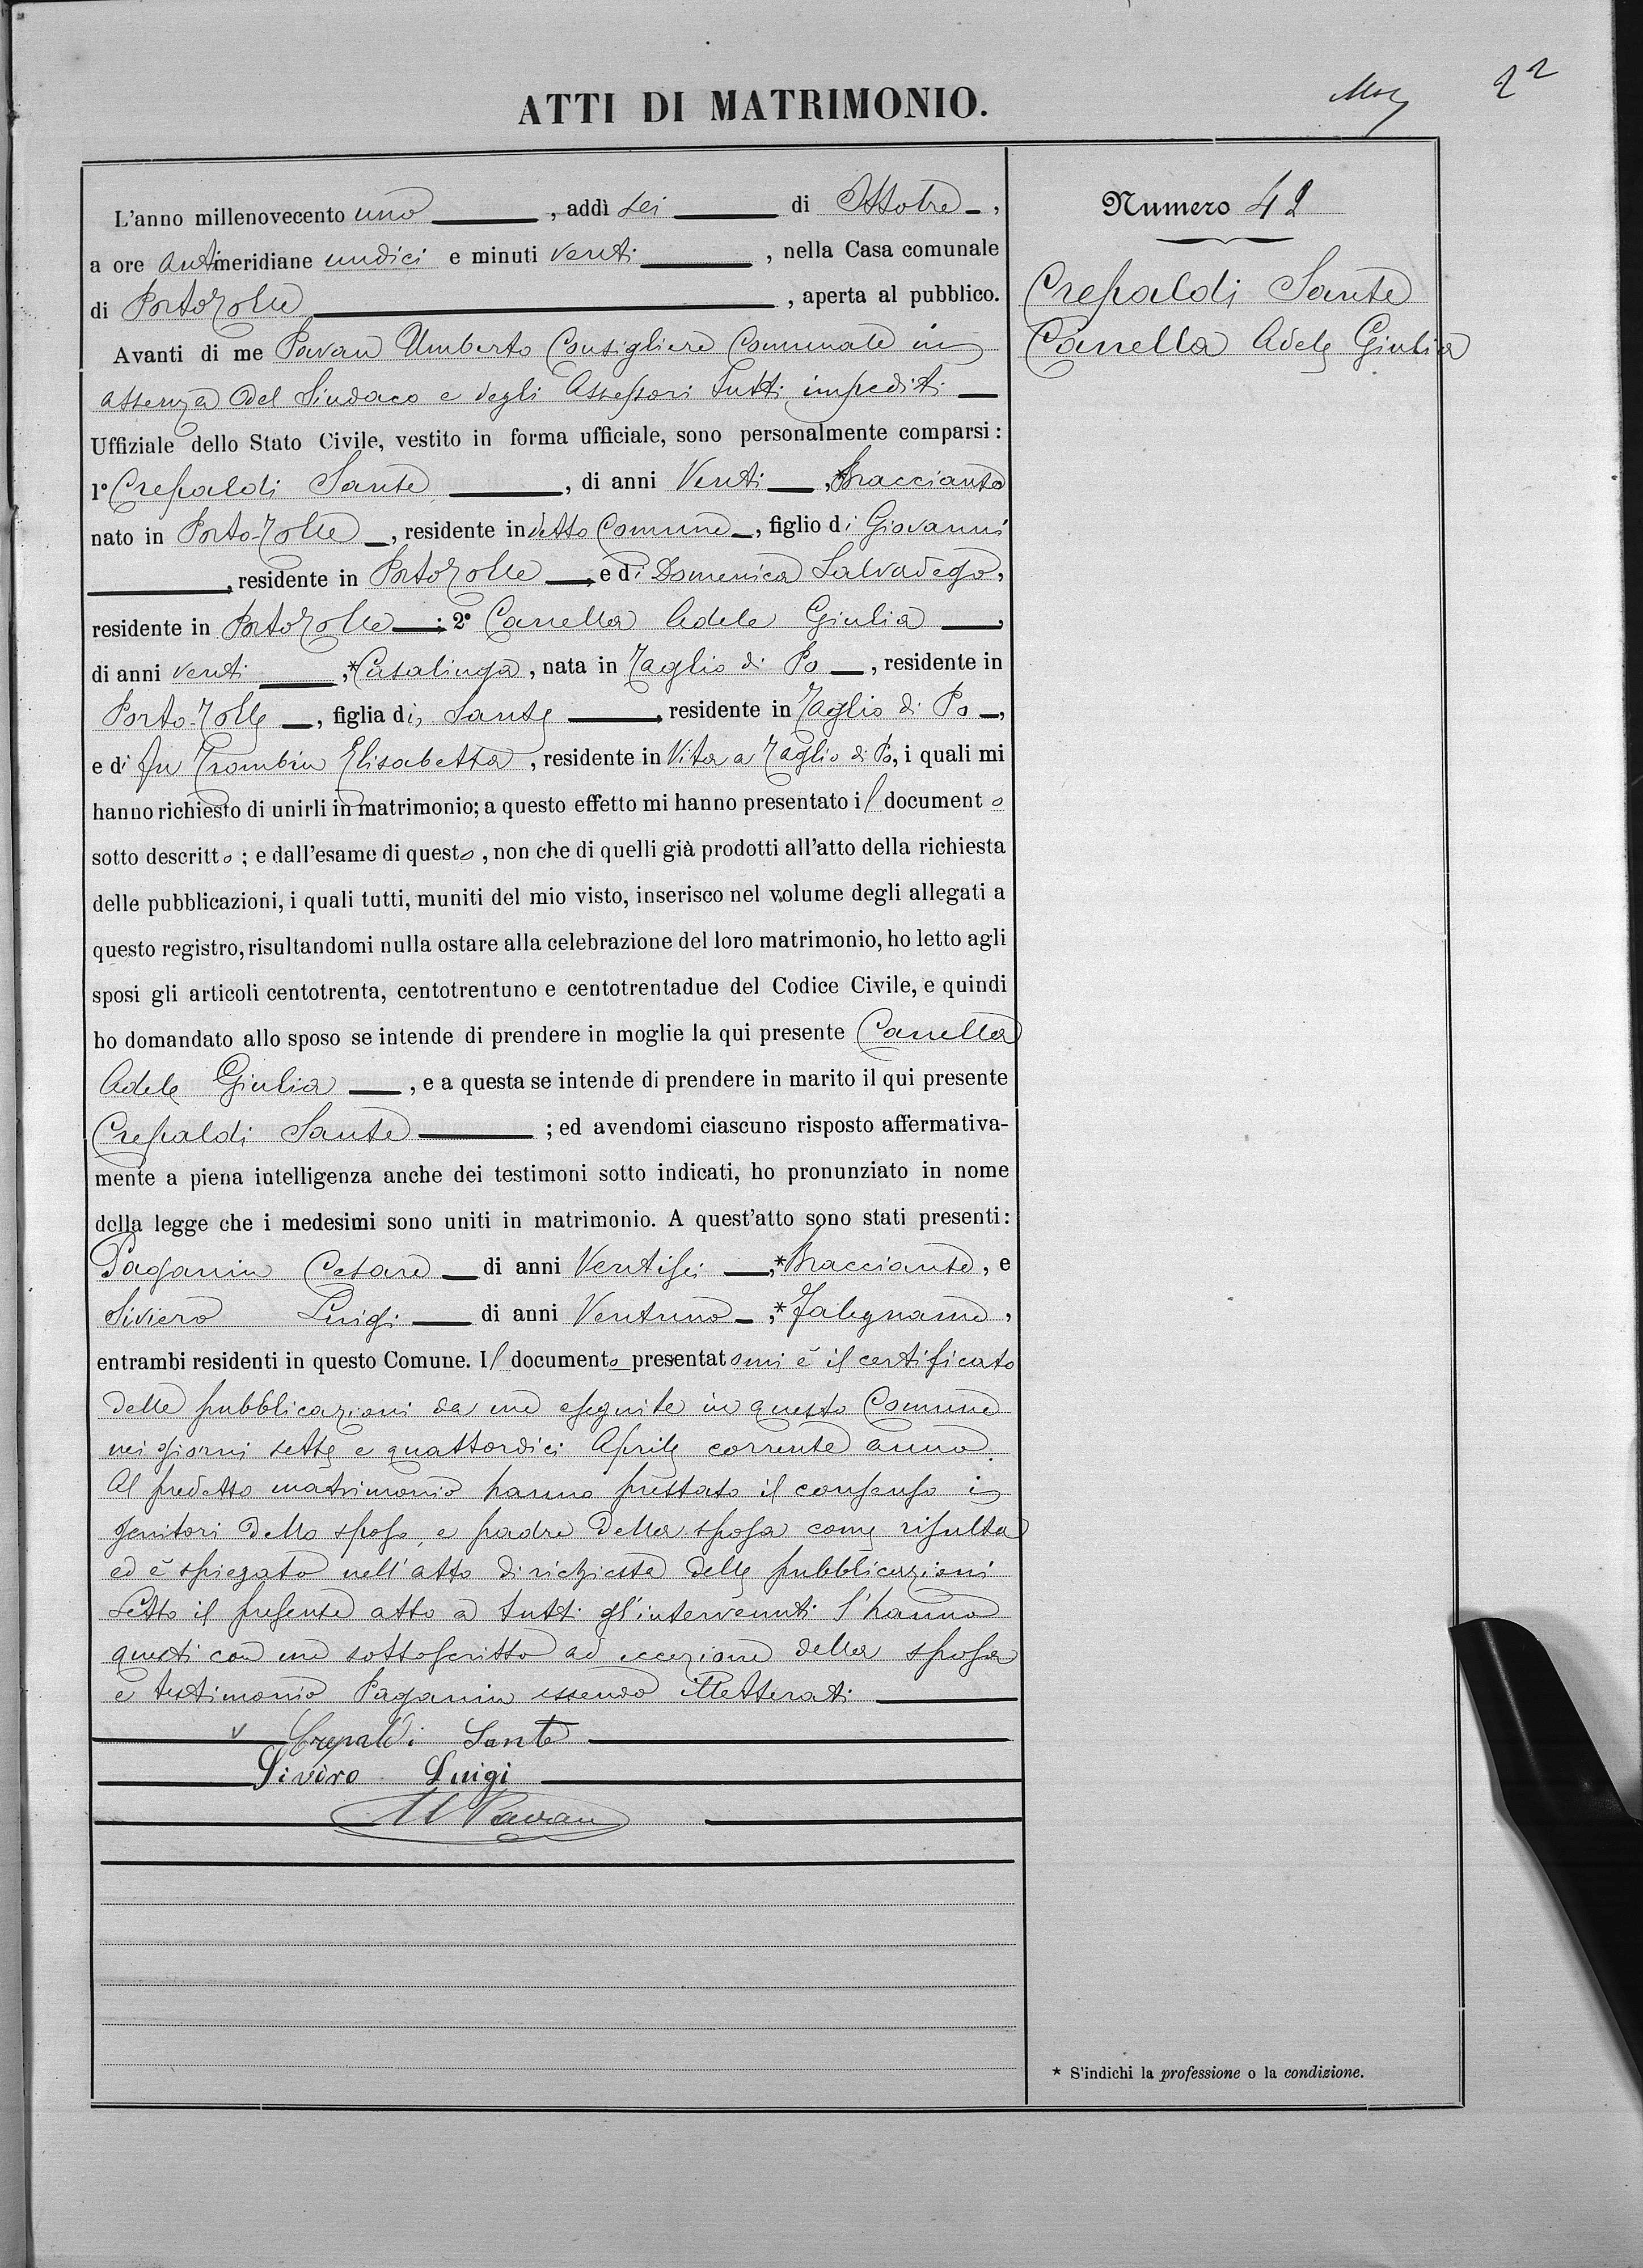 22
ATTI DI MATRIMONIO.
Numero 42
Crepaldi Sante
Canella Adele Giulia
L'anno millenovecento uno, addì sei di Ottobre,
a ore antimeridiane undici e minuti venti, nella Casa comunale
di Portotolle, aperta al pubblico.
Avanti di me Pavan Umberto Consigliere Comunale in
assenza del Sindaco e degli Assessori tutti impediti
Uffiziale dello Stato Civile, vestito in forma ufficiale, sono personalmente comparsi:
1º Crepaldi Sante, di anni Venti, *Bracciante
nato in Porto-Tolle, residente in detto Comune, figlio di Giovanni
, residente in Portotolle, e di Domenica Salvadego,
residente in Portotolle; 2º Canella Adele Giulia,
di anni venti, *Casalinga, nata in Taglio di Po, residente in
Porto-Tolle, figlia di Sante, residente in Taglio di Po,
e di fu Trombin Elisabetta, residente in Vita a Taglio di Po, i quali mi
hanno richiesto di unirli in matrimonio; a questo effetto mi hanno presentato il documento
sotto descritto; e dall'esame di questo, non che di quelli già prodotti all'atto della richiesta
delle pubblicazioni, i quali tutti, muniti del mio visto, inserisco nel volume degli allegati a
questo registro, risultandomi nulla ostare alla celebrazione del loro matrimonio, ho letto agli
sposi gli articoli centotrenta, centotrentuno e centotrentadue del Codice Civile, e quindi
ho domandato allo sposo se intende di prendere in moglie la qui presente Canella
Adele Giulia, e a questa se intende di prendere in marito il qui presente
Crepaldi Sante; ed avendomi ciascuno risposto affermativa-
mente a piena intelligenza anche dei testimoni sotto indicati, ho pronunziato in nome
della legge che i medesimi sono uniti in matrimonio. A quest'atto sono stati presenti:
Paganin Cesare di anni Ventisei, *Bracciante, e
Siviero Luigi di anni Ventuno, *Falegname,
entrambi residenti in questo Comune. Il documento presentatomi è il certificato
delle pubblicazioni da me eseguite in questo Comune
nei giorni sette e quattordici Aprile corrente anno.
Al predetto matrimonio hanno prestato il consenso i
genitori dello sposo, e padre della sposa come risulta
ed è spiegato nell'atto di richiesta delle pubblicazioni
Letto il presente atto a tutti gl'intervenuti l'hanno
questi con me sottoscritto ad eccezione della sposa
e testimonio Paganin essendo illetterati
Crepaldi Sante
Siviro Luigi
U Pavan
* S'indichi la professione o la condizione.